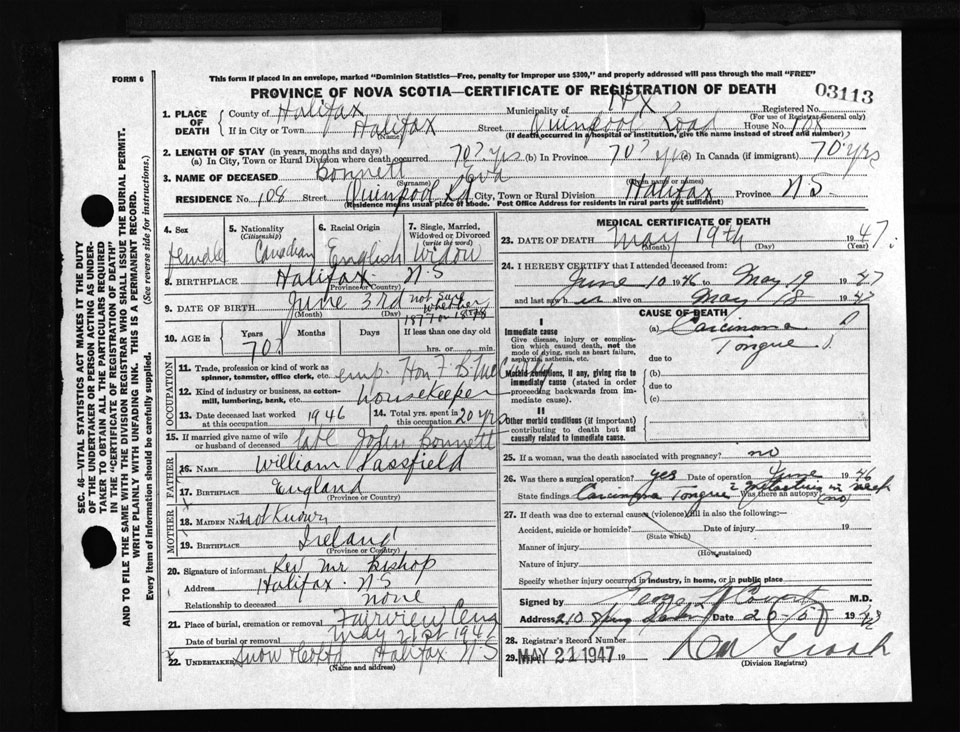 FORM 6
This form if placed in an envelope, marked "Dominion Statistics—Free, penalty for improper use $300," and properly addressed will pass through the mail "FREE"
PROVINCE OF NOVA SCOTIA—CERTIFICATE OF REGISTRATION OF DEATH
03113
1. PLACE OF DEATH
County of Halifax
Municipality of Hfx
Registered No.
(For use of Registrar General only)
If in City or Town Halifax Street Quinpool Road House No. 108
(Name)
(If death occurred in a hospital or institution, give the name instead of street and number)
2. LENGTH OF STAY (in years, months and days)
(a) In City, Town or Rural Division where death occurred 70? yrs (b) In Province 70? yrs (c) In Canada (if immigrant) 70 yrs
3. NAME OF DECEASED Bonnett Eva
(Surname) (Given name or names)
RESIDENCE No. 108 Street Quinpool Rd City, Town or Rural Division Halifax Province N S
(Residence means usual place of abode. Post Office Address for residents in rural parts not sufficient)
4. Sex
female
5. Nationality
(Citizenship)
Canadian
6. Racial Origin
English
7. Single, Married, Widowed or Divorced
(write the word)
Widow
8. BIRTHPLACE Halifax N S
(Province or Country)
9. DATE OF BIRTH June 3rd not sure whether 1877 or 1878
(Month) (Day)
10. AGE in
Years Months Days If less than one day old
70?
hrs. or min.
OCCUPATION
11. Trade, profession or kind of work as spinner, teamster, office clerk, etc. emp. Hon F. B.
12. Kind of industry or business, as cotton mill, lumbering, bank, etc. housekeeper
13. Date deceased last worked at this occupation 1946
14. Total yrs. spent in this occupation 20 yrs
15. If married give name of wife or husband of deceased late John Bonnett
FATHER
16. Name William Lassfield
17. Birthplace England
(Province or Country)
MOTHER
18. Maiden Name not known
19. Birthplace Ireland
(Province or Country)
20. Signature of informant Rev Mr Bishop
Address Halifax N S
Relationship to deceased none
21. Place of burial, cremation or removal Fairview Cem
Date of burial or removal May 21st 1947
22. Undertaker Snow Halifax N S
(Name and address)
MEDICAL CERTIFICATE OF DEATH
23. DATE OF DEATH May 19th 1947.
(Month) (Day) (Year)
24. I HEREBY CERTIFY that I attended deceased from:
June 10 1946 to May 19 1947
and last saw her alive on May 18 1947
CAUSE OF DEATH
I
Immediate cause
Give disease, injury or complication which caused death, not the mode of dying, such as heart failure, asphyxia, asthenia, etc.
(a) Carcinoma
Tongue
due to
Morbid conditions, if any, giving rise to immediate cause (stated in order proceeding backwards from immediate cause).
(b)
due to
(c)
II
Other morbid conditions (if important) contributing to death but not causally related to immediate cause.
25. If a woman, was the death associated with pregnancy? no
26. Was there a surgical operation? yes Date of operation June 1946
State findings Carcinoma Tongue & metastasis in neck Was there an autopsy? (no)
27. If death was due to external causes (violence) fill in also the following:—
Accident, suicide or homicide? Date of injury 19
(State which)
Manner of injury
(How sustained)
Nature of injury
Specify whether injury occurred in industry, in home, or in public place
Signed by George M.D.
Address 210 Spring Date 20
28. Registrar's Record Number
29. MAY 21 1947 19
(Division Registrar)
SEC. 46—VITAL STATISTICS ACT MAKES IT THE DUTY OF THE UNDERTAKER OR PERSON ACTING AS UNDERTAKER TO OBTAIN ALL THE PARTICULARS REQUIRED IN THE "CERTIFICATE OF REGISTRATION OF DEATH"
AND TO FILE THE SAME WITH THE DIVISION REGISTRAR WHO SHALL ISSUE THE BURIAL PERMIT.
WRITE PLAINLY WITH UNFADING INK. THIS IS A PERMANENT RECORD.
Every item of information should be carefully supplied. (See reverse side for instructions.)